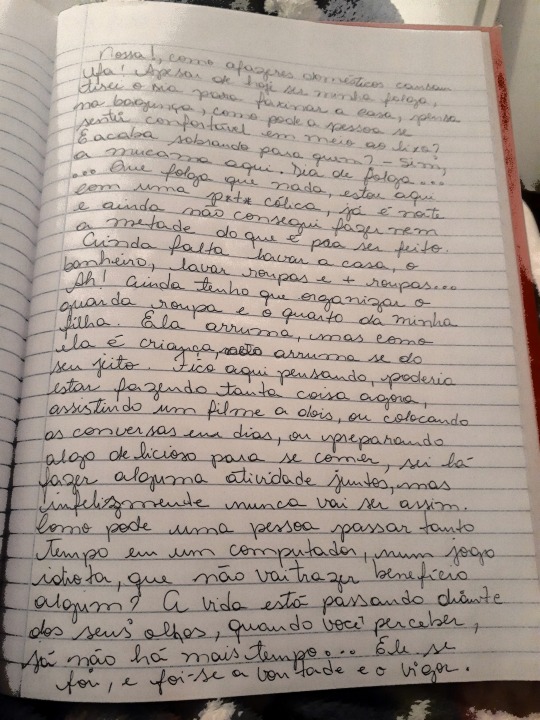 Nossa!, como afazeres domésticos cansam
Ufa! Apesar de hoje ser minha folga,
tirei o dia para faxinar a casa, pensa
na bagunça, como pode a pessoa se
sentir confortável em meio ao lixo?
E acaba sobrando para quem? - Sim,
a mucama aqui. Dia de folga...
... Que folga que nada, estou aqui
com uma p*t* cólica, já é noite
e ainda não consegui fazer nem
a metade do que é pra ser feito.
Ainda falta lavar a casa, o
banheiro, lavar roupas e + roupas...
Ah! Ainda tenho que organizar o
guarda roupa e o quarto da minha
filha. Ela arruma, mas como
ela é criança, arruma se do
seu jeito. Fico aqui pensando, poderia
estar fazendo tanta coisa agora,
assistindo um filme a dois, ou colocando
as conversas em dias, ou preparando
algo delicioso para se comer, sei lá
fazer alguma atividade juntos, mas
infelizmente nunca vai ser assim.
Como pode uma pessoa passar tanto
tempo em um computador, num jogo
idiota, que não vai trazer benefício
algum? A vida está passando diante
dos seus olhos, quando você perceber,
já não há mais tempo... Ele se
foi, e foi-se a vontade e o vigor.